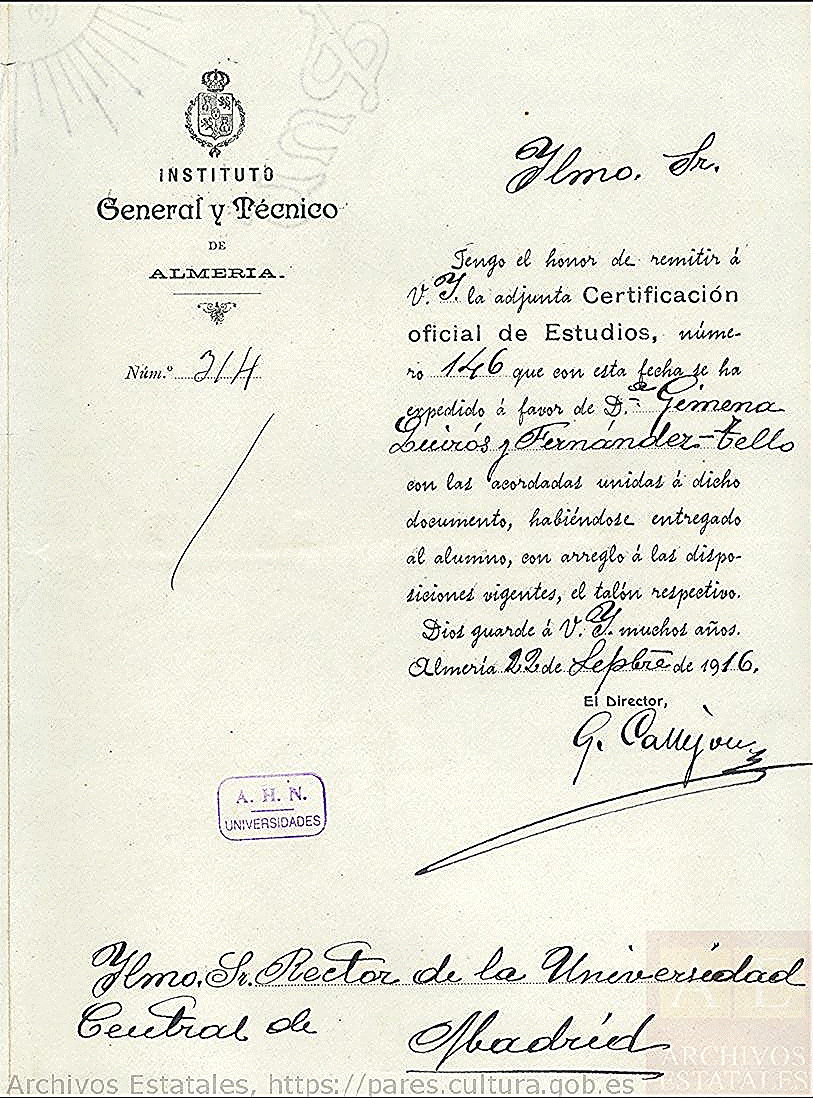 INSTITUTO
General y Técnico
DE
ALMERIA.
Núm.º 314
Ylmo. Sr.
Tengo el honor de remitir á
V. Y. la adjunta Certificación
oficial de Estudios, núme-
ro 146 que con esta fecha se ha
expedido á favor de D.ª Gimena
Quirós y Fernández-Tello
con las acordadas unidas á dicho
documento, habiéndose entregado
al alumno, con arreglo á las dispo-
siciones vigentes, el talón respectivo.
Dios guarde á V. Y. muchos años.
Almería 22 de Sepbre de 1916.
El Director,
G. Callejon
A. H. N.
UNIVERSIDADES
Ylmo. Sr. Rector de la Universidad
Central de
Madrid
AE
ARCHIVOS
ESTATALES
Archivos Estatales, https://pares.cultura.gob.es